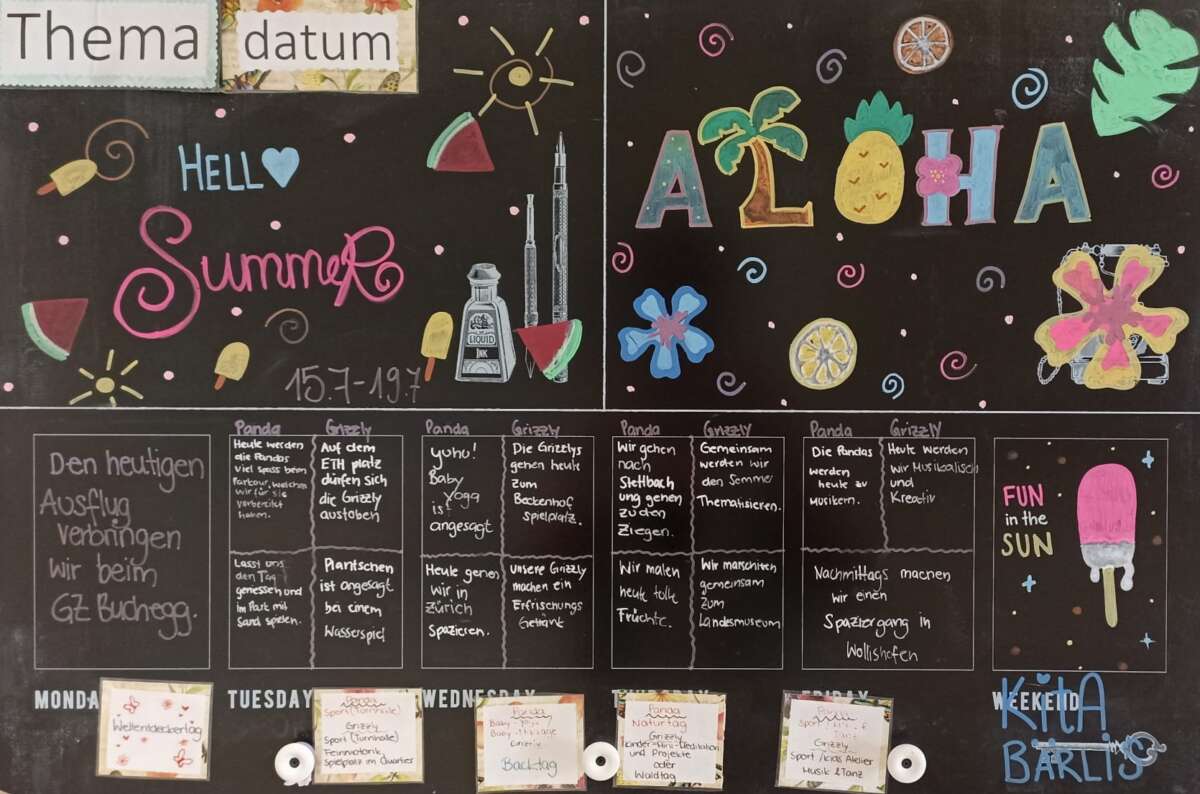 Thema
datum
HELL
SUMMER
15.7-19.7
ALOHA
LIQUID
INK
Den heutigen
Ausflug
verbringen
wir beim
GZ Buchegg.
Panda
Grizzly
Heute werden
die Pandas
viel Spass beim
Parkour, welchen
wir für sie
vorbereitet
haben.
Auf dem
ETH platz
dürfen sich
die Grizzly
austoben
Lasst uns
den Tag
genessen und
im Park mit
Sand spielen.
Plantschen
ist angesagt
bei einem
Wasserspiel
Panda
Grizzly
yuhu!
Baby
Yoga
ist
angesagt
Die Grizzlys
gehen heute
zum
Beckenhof
spielplatz.
Heute gehen
wir in
Zürich
Spazieren.
unsere Grizzly
machen ein
Erfrischungs
Getränk
Panda
Grizzly
Wir gehen
nach
Stettbach
ung gehen
zu den
Ziegen.
Gemeinsam
werden wir
den Sommer
Thematisieren.
Wir malen
heute tolle
Früchte.
Wir marschiren
gemeinsam
zum
Landesmuseum
Panda
Grizzly
Die Pandas
werden
heute zu
Musikern.
Heute werden
wir Musikalisch
und
Kreativ
Nachmittags machen
wir einen
Spaziergang in
Wollishofen
FUN
in the
SUN
MONDA
TUESDAY
WEDNESDAY
FRIDAY
WEEKEND
KitA
BÄRLIS
Weltentdeckertag
Panda
Sport (Turnhalle)
Grizzly
Sport (Turnhalle)
Feinmotorik,
Spielplatz im Quartier
Panda
Baby-Yoga
Baby-Massage
Grizzly
Backtag
Panda
Naturtag
Grizzly
und Projekte
oder
Waldtag
Panda
Tanz
Grizzly
Sport /Kids Atelier
Musik &Tanz